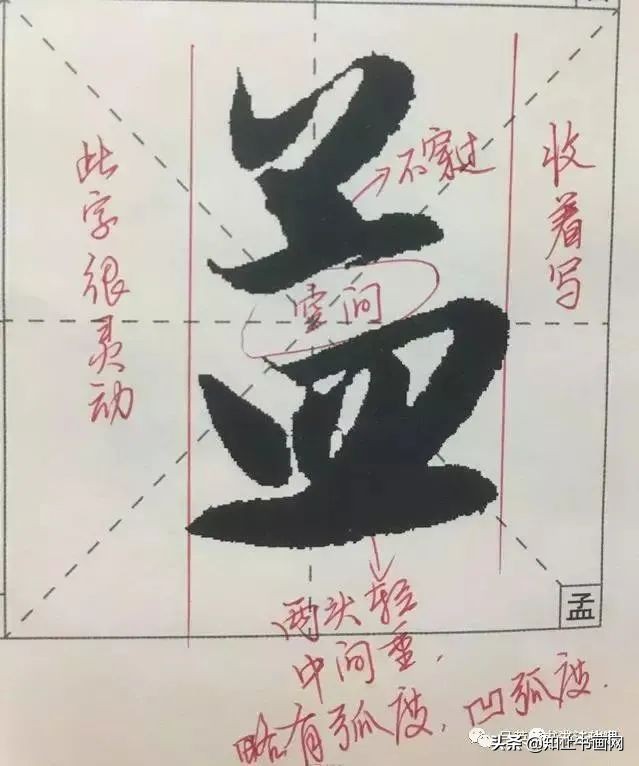 孟
此字很灵动
不穿过
收着写
空间
孟
两头轻
中间重.
略有弧度, 凹弧度.
头条@知止书画网